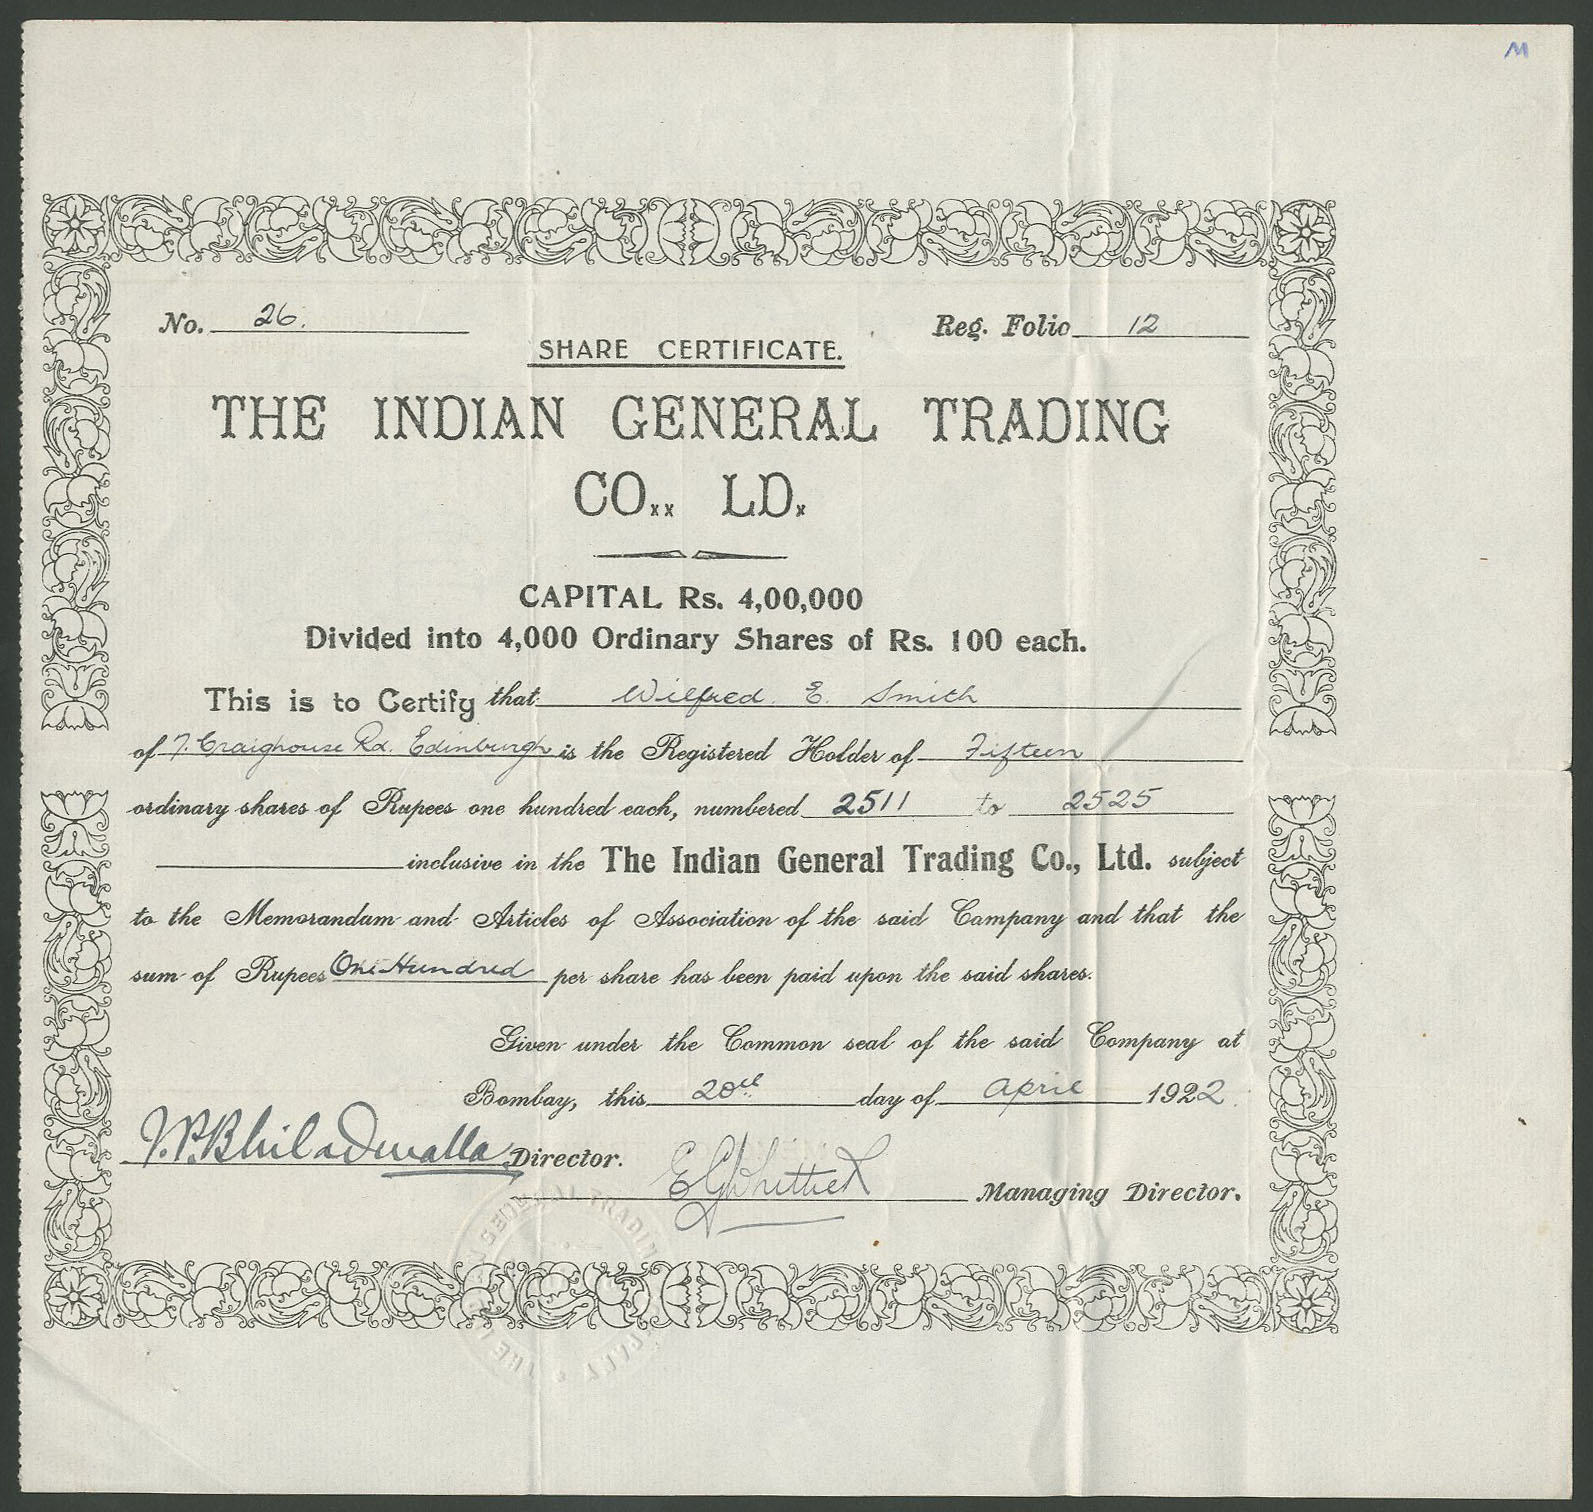 M
No. 26.
Reg. Folio 12
SHARE CERTIFICATE.
THE INDIAN GENERAL TRADING
CO., LD.
CAPITAL Rs. 4,00,000
Divided into 4,000 Ordinary Shares of Rs. 100 each.
This is to Certify that Wilfred. E. Smith
of 7. Craighouse Rd. Edinburgh is the Registered Holder of Fifteen
ordinary shares of Rupees one hundred each, numbered 2511 to 2525
inclusive in the The Indian General Trading Co., Ltd. subject
to the Memorandam and Articles of Association of the said Company and that the
sum of Rupees One Hundred per share has been paid upon the said shares.
Given under the Common seal of the said Company at
Bombay, this 20th day of April 1922.
Director.
Managing Director.